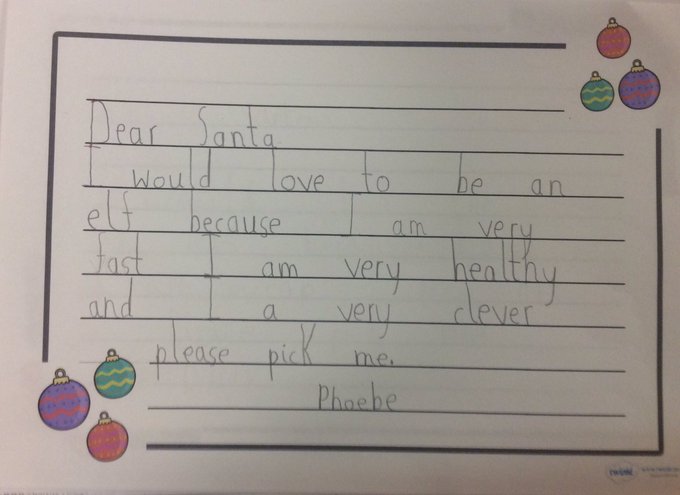 Dear Santa
I would love to be an
elf because I am very
fast I am very healthy
and I a very clever
please pick me.
Phoebe
twinkl